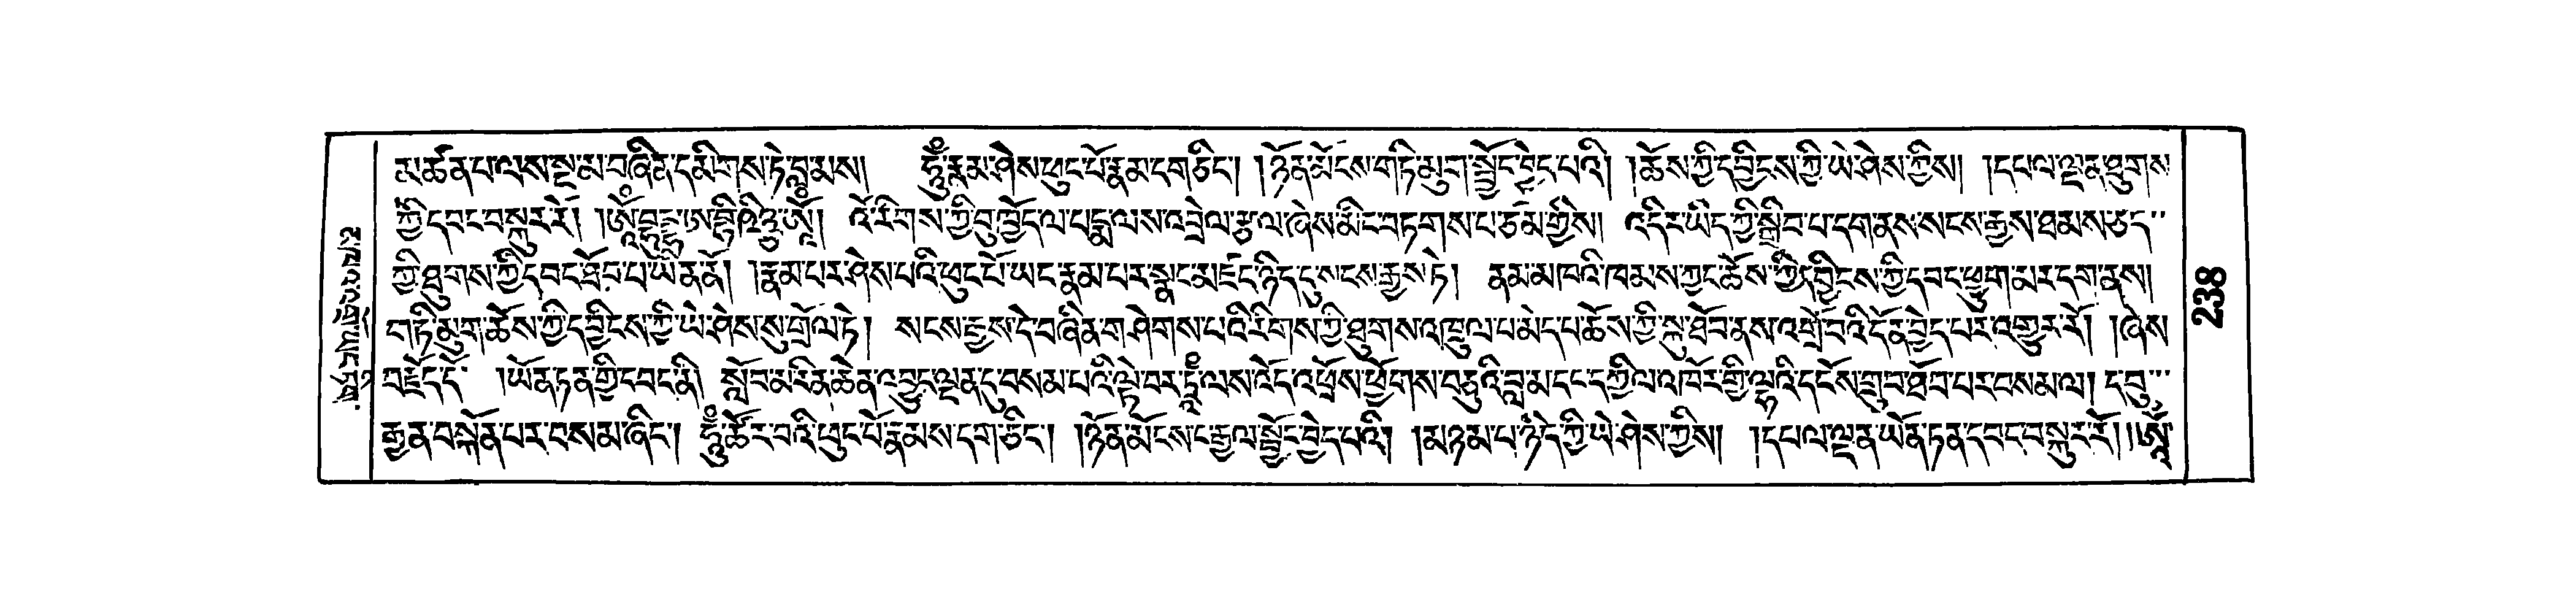 མ་ཚོན་པ་ལས་སྔ་མ་བཞིན་དམིགས་ཏེ་བླམས། ཧཱུྃ་རྣམ་ཤེས་ཕུང་པོ་རྣམ་དག་ཅིང་། །ཉོན་མོངས་གཏི་མུག་སྦྱོང་བྱེད་པའི། །ཆོས་ཀྱི་དབྱིངས་ཀྱི་ཡེ་ཤེས་ཀྱིས། །དཔལ་ལྡན་ཐུགས་
ཀྱི་དབང་བསྐུར་རོ། །ཨོཾ་བུདྡྷ་ཨ་བྷི་ཥིཉྩ་ཨོཾ། འོ་རིགས་ཀྱི་བུ་ཁྱོད་ལ་པདྨ་ལས་འབྲེལ་རྩལ་ཞེས་མིང་བཏགས་པ་ཙམ་གྱིས། འདིར་ཡིད་ཀྱི་སྒྲིབ་པ་དག་ནས་སངས་རྒྱས་ཐམས་ཅད་
ཀྱི་ཐུགས་ཀྱི་དབང་ཐོབ་པ་ཡིན་ནོ། །རྣམ་པར་ཤེས་པའི་ཕུང་པོ་ཡང་རྣམ་པར་སྣང་མཛད་ཉིད་དུ་སངས་རྒྱས་ཏེ། ནམ་མཁའི་ཁམས་ཀྱང་ཆོས་ཀྱི་དབྱིངས་ཀྱི་དབང་ཕྱུག་མར་དག་ནས།
གཏི་མུག་ཆོས་ཀྱི་དབྱིངས་ཀྱི་ཡེ་ཤེས་སུ་གྲོལ་ཏེ། སངས་རྒྱས་དེ་བཞིན་གཤེགས་པའི་རིགས་ཀྱི་ཐུགས་འཁྲུལ་པ་མེད་པ་ཆོས་ཀྱི་སྐུ་ཐོབ་ནས་འགྲོ་བའི་དོན་བྱེད་པར་འགྱུར་རོ། །ཞེས་
བརྗོད་དོ་ །ཡོན་ཏན་གྱི་དབང་ནི། སློབ་མ་རིན་ཆེན་འབྱུང་ལྡན་དུ་བསམ་པའི་ལྟེ་བར་ཏྲཱྃ་ལས་འོད་འཕྲོས་ཕྱོགས་བཅུའི་བླ་མ་དང་དཀྱིལ་འཁོར་གྱི་ལྷའི་དངོས་གྲུབ་ཐོབ་པར་བསམ་ལ། དབུ་
རྒྱན་བསྐོན་པར་བསམ་ཞིང་། ཧཱུྃ་ཚོར་བའི་ཕུང་པོ་རྣམས་དག་ཅིང་། །ཉོན་མོངས་ང་རྒྱལ་སྦྱོང་བྱེད་པའི། །མཉམ་པ་ཉིད་ཀྱི་ཡེ་ཤེས་ཀྱིས། །དཔལ་ལྡན་ཡོན་ཏན་དབང་བསྐུར་རོ། །ཨོཾ་
238